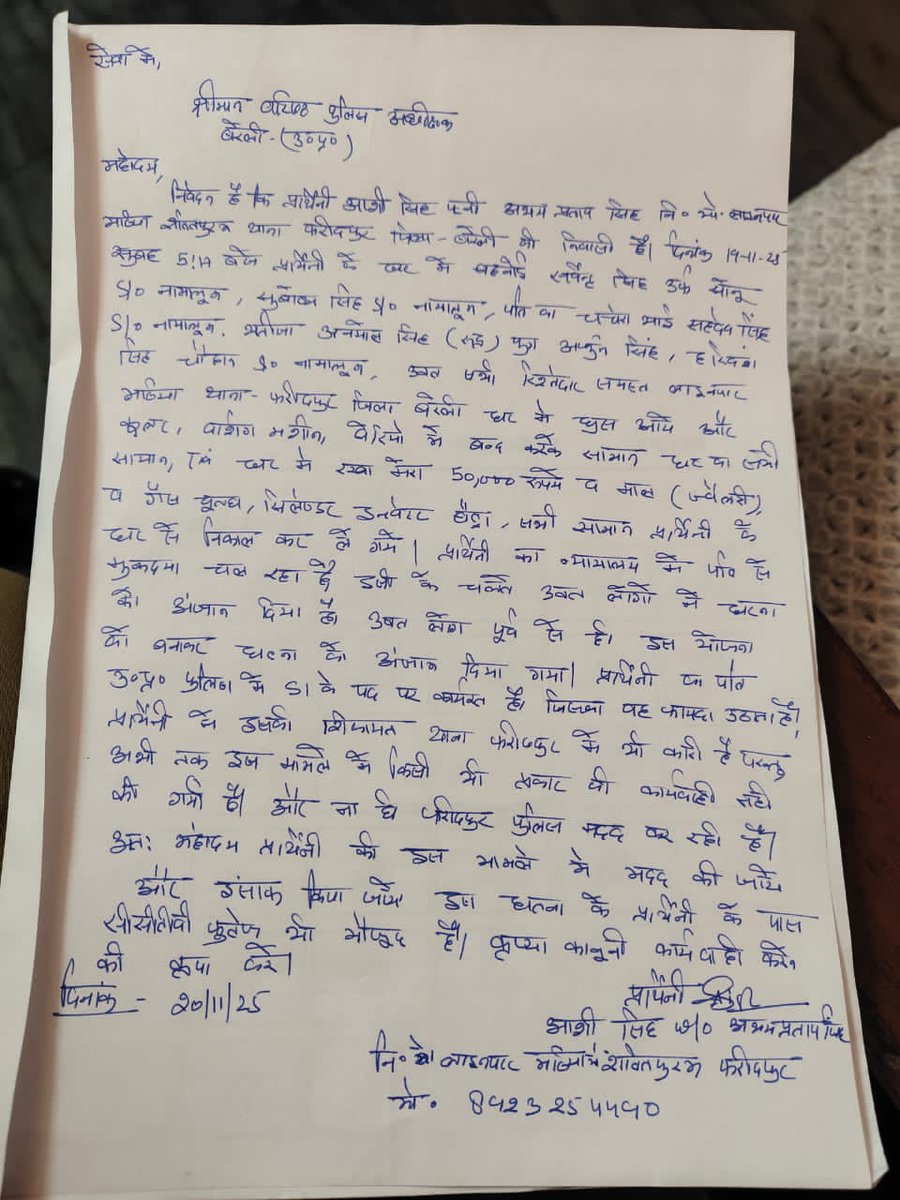 सेवा में,
श्रीमान वरिष्ठ पुलिस अधीक्षक
बरेली-(उ०प्र०)
महोदय,
निवेदन है कि प्रार्थिनी आशी सिंह पत्नी अभय प्रताप सिंह नि० मो० लाइनपार
मठिया शक्तिपुरम थाना फरीदपुर जिला-बरेली की निवासी है। दिनांक 19-11-25
सुबह 5:14 बजे प्रार्थिनी के घर में बहनोई सर्वेन्द्र सिंह उर्फ सोनू
S/o नामालूम, सुबोध सिंह S/o नामालूम, पति का चचेरा भाई सहदेव सिंह
S/o नामालूम, भतीजा अनमोल सिंह (रूद्र) पुत्र अर्जुन सिंह, हरिवंश
सिंह चौहान S/o नामालूम, उक्त सभी रिश्तेदार समस्त लाइनपार
मठिया थाना-फरीदपुर जिला बरेली घर में घुस आये और
कूलर, वाशिंग मशीन, बोरियो में बन्द करके सामान घर का सभी
सामान, एवं घर में रखा मेरा 50,000 रूपये व माल (ज्वैलरी),
व गैस चूल्हा, सिलेण्डर इन्वेटर बैट्रा, सभी सामान प्रार्थिनी के
घर से निकाल कर ले गये। प्रार्थिनी का न्यायालय में पति से
मुकदमा चल रहा है इसी के चलते उक्त लोगों ने घटना
को अंजाम दिया है। उक्त लोग पूर्व से ही इस योजना
को बनाकर घटना को अंजाम दिया गया। प्रार्थिनी का पति
उ०प्र० पुलिस में SI के पद पर कार्यरत है। जिसका वह फायदा उठाता है।
प्रार्थिनी ने इसकी शिकायत थाना फरीदपुर में भी करी है परन्तु
अभी तक इस मामले में किसी भी प्रकार की कार्यवाही नही
की गयी है। और ना ही फरीदपुर पुलिस मदद कर रही है।
अतः महोदय प्रार्थिनी की इस मामले में मदद की जाये
और इंसाफ किया जाये इस घटना के प्रार्थिनी के पास
सीसीटीवी फुटेज भी मौजूद है। कृप्या कानूनी कार्यवाही करने
की कृपा करें।
दिनांक - 20/11/25
प्रार्थिनी
आशी सिंह w/o अभय प्रताप सिंह
नि० मो० लाइनपार मठिया शक्तिपुरम फरीदपुर
मो. 8923254490